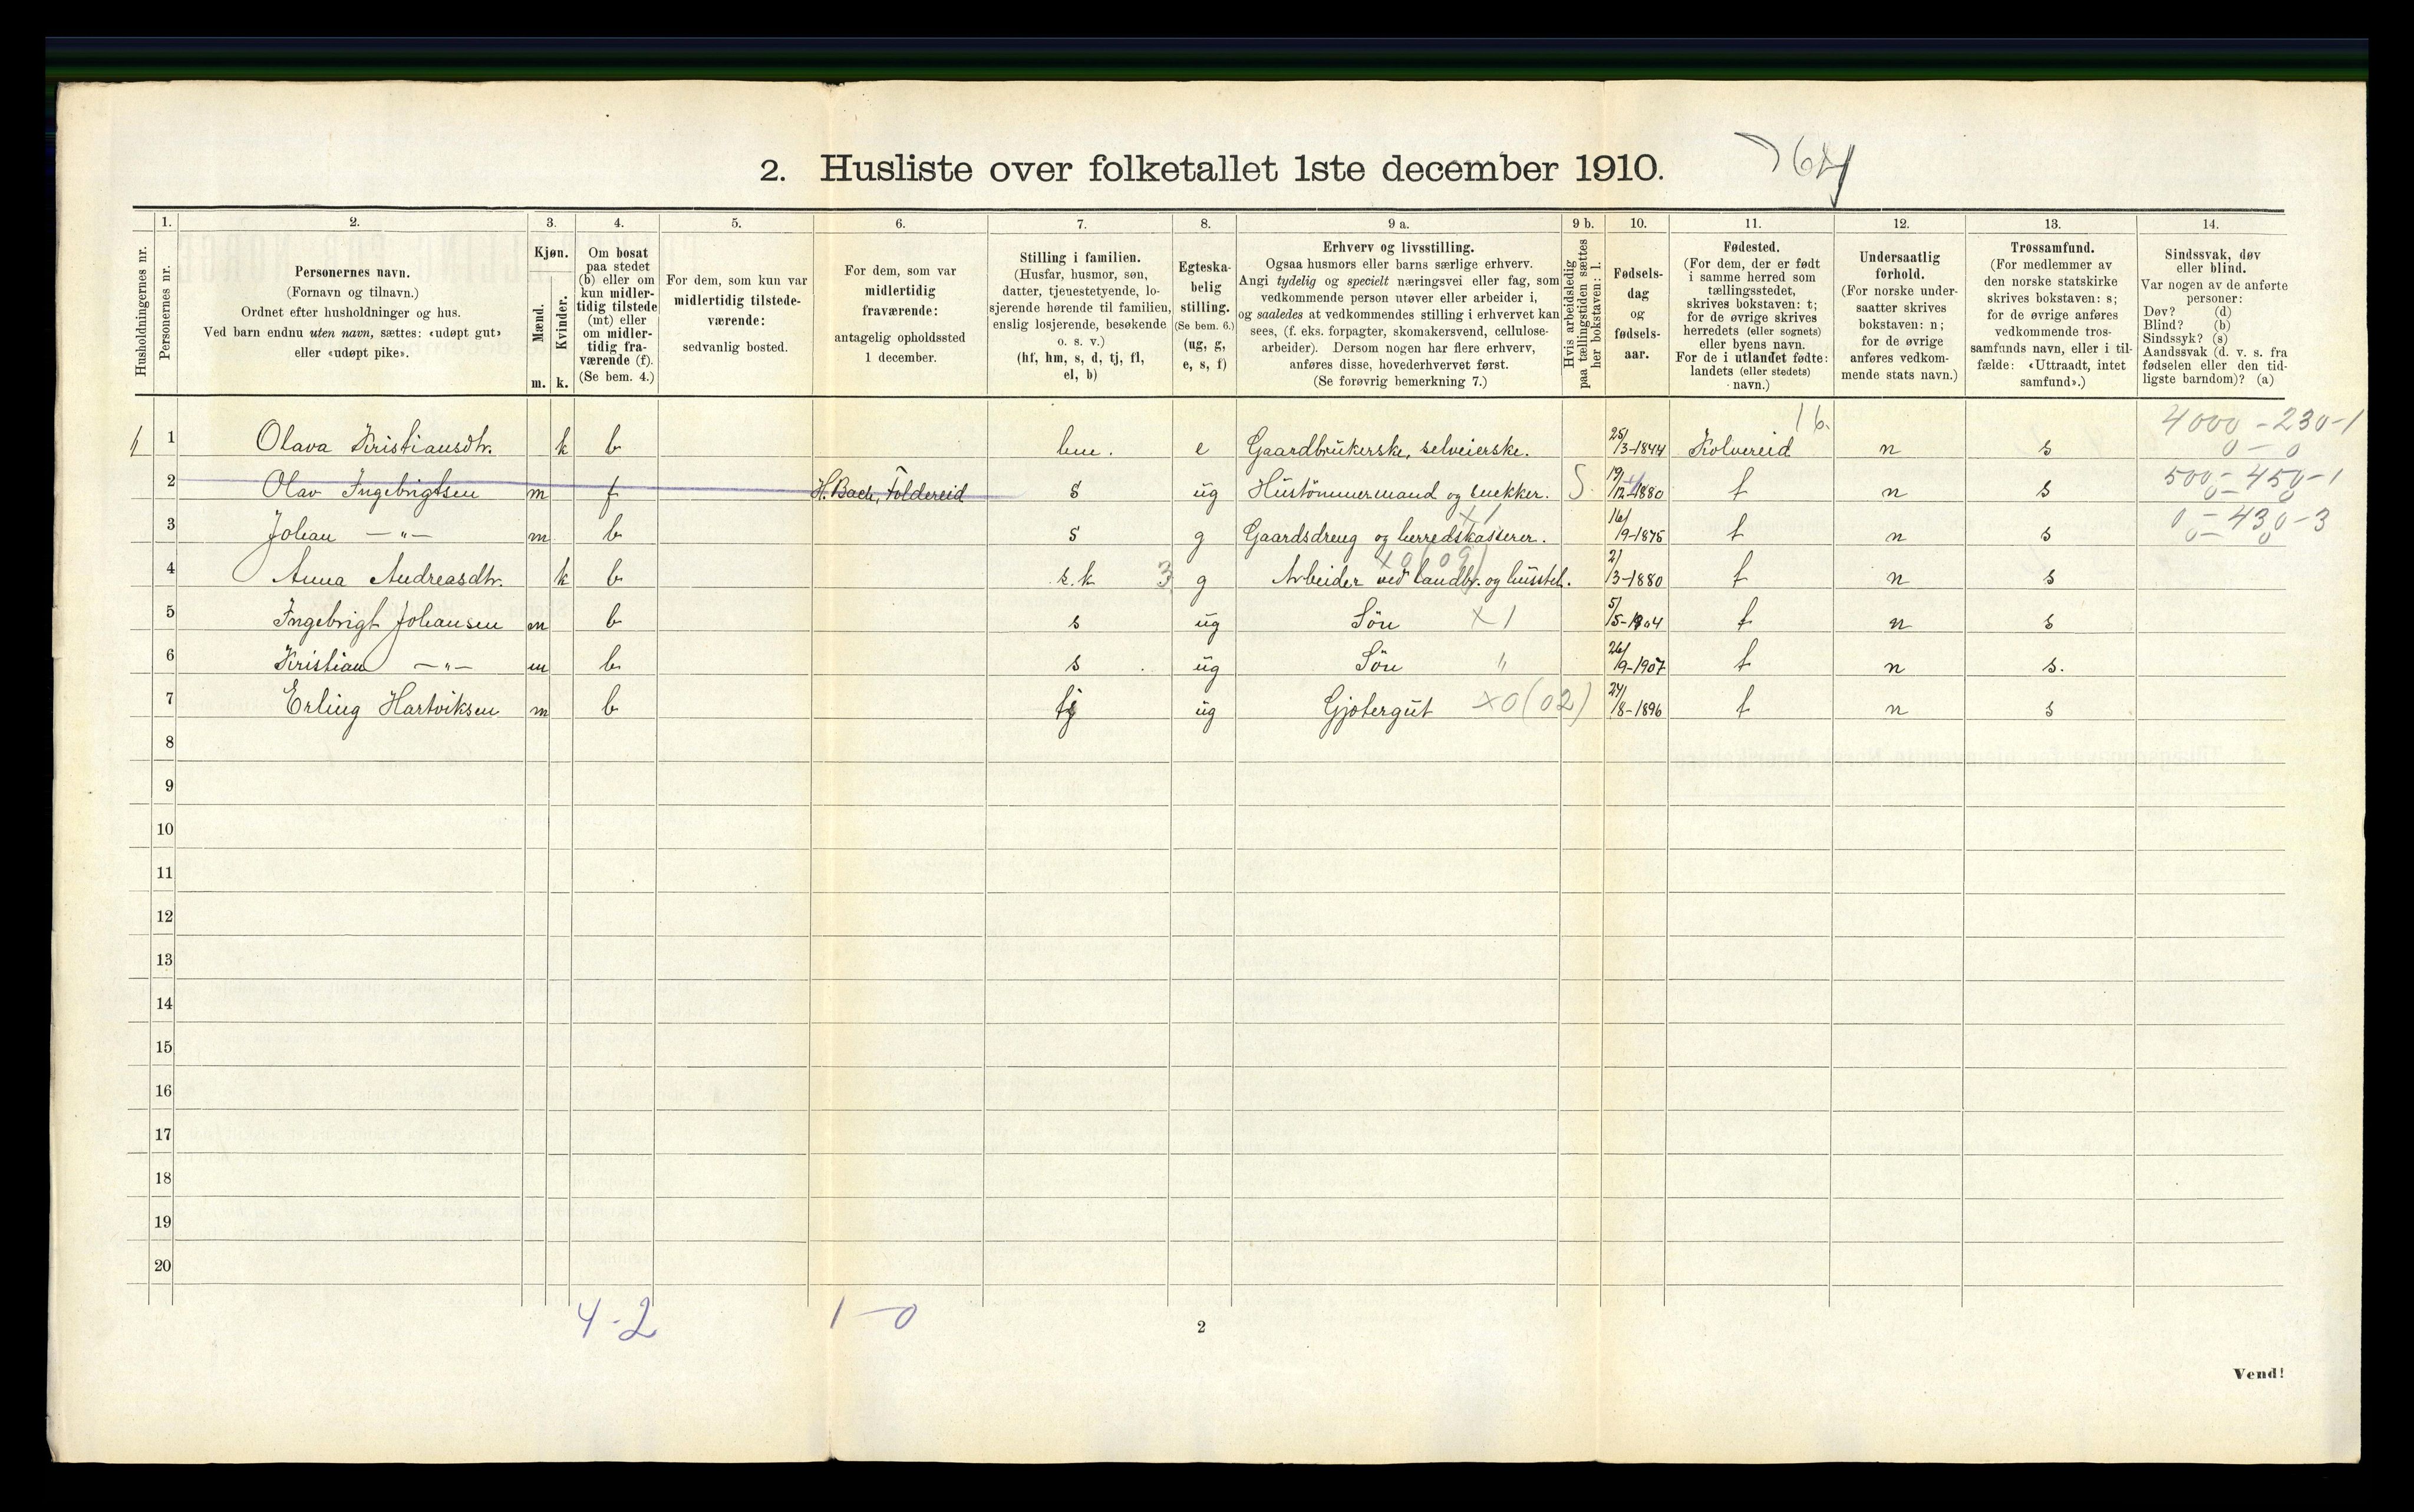 2. Husliste over folketallet 1ste december 1910.
1. 2. 3. 4. 5. 6. 7. 8. 9 a. 9 b. 10. 11. 12. 13. 14.
Husholdningernes nr.
Personernes nr.
Personernes navn.
(Fornavn og tilnavn.)
Ordnet efter husholdninger og hus.
Ved barn endnu uten navn, sættes: «udøpt gut»
eller «udøpt pike».
Kjøn.
Mænd.
Kvinder.
m. k.
Om bosat
paa stedet
(b) eller om
kun midler-
tidig tilstede
(mt) eller
om midler-
tidig fra-
værende (f).
(Se bem. 4.)
For dem, som kun var
midlertidig tilstede-
værende:
sedvanlig bosted.
For dem, som var
midlertidig
fraværende:
antagelig opholdssted
1 december.
Stilling i familien.
(Husfar, husmor, søn,
datter, tjenestetyende, lo-
sjerende hørende til familien,
enslig losjerende, besøkende
o. s. v.)
(hf, hm, s, d, tj, fl,
el, b)
Egteska-
belig
stilling.
(Se bem. 6.)
(ug, g,
e, s, f)
Erhverv og livsstilling.
Ogsaa husmors eller barns særlige erhverv.
Angi tydelig og specielt næringsvei eller fag, som
vedkommende person utøver eller arbeider i,
og saaledes at vedkommendes stilling i erhvervet kan
sees, (f. eks. forpagter, skomakersvend, cellulose-
arbeider). Dersom nogen har flere erhverv,
anføres disse, hovederhvervet først.
(Se forøvrig bemerkning 7.)
Hvis arbeidsledig
paa tællingstiden sættes
her bokstaven: l.
Fødsels-
dag
og
fødsels-
aar.
Fødested.
(For dem, der er født
i samme herred som
tællingsstedet,
skrives bokstaven: t;
for de øvrige skrives
herredets (eller sognets)
eller byens navn.
For de i utlandet fødte:
landets (eller stedets)
navn.)
Undersaatlig
forhold.
(For norske under-
saatter skrives
bokstaven: n;
for de øvrige
anføres vedkom-
mende stats navn.)
Trossamfund.
(For medlemmer av
den norske statskirke
skrives bokstaven: s;
for de øvrige anføres
vedkommende tros-
samfunds navn, eller i til-
fælde: «Uttraadt, intet
samfund».)
Sindssvak, døv
eller blind.
Var nogen av de anførte
personer:
Døv? (d)
Blind? (b)
Sindssyk? (s)
Aandssvak (d. v. s. fra
fødselen eller den tid-
ligste barndom)? (a)
16. 4000 - 230-1
1 1 Olava Kristiansdtr. k b hm. e Gaardbrukerske, selveierske. 25/3-1844 Kolvereid n s 0 - 0
2 Olav Ingebrigtsen m f H. Bach, Foldereid s ug Hustømmermand og snekker. S 19/12-1880 t n s 500 - 450-1
0 - 0
3 Johan —„— m b s g Gaardsdreng og herredskasserer. x1 16/9-1875 t n s 0 - 430-3
0 - 0
4 Anna Andreasdtr. k b s.k 3 g Arbeider ved landbr. og husstel. x0(09) 2/3-1880 t n s
5 Ingebrigt Johansen m b s ug Søn x1 5/5-1904 t n s
6 Kristian —„— m b s ug Søn „ 26/9-1907 t n s.
7 Erling Hartviksen m b tj ug Gjætergut x0(02) 24/8-1896 t n s
8
9
10
11
12
13
14
15
16
17
18
19
20
4-2 1-0
2
Vend!